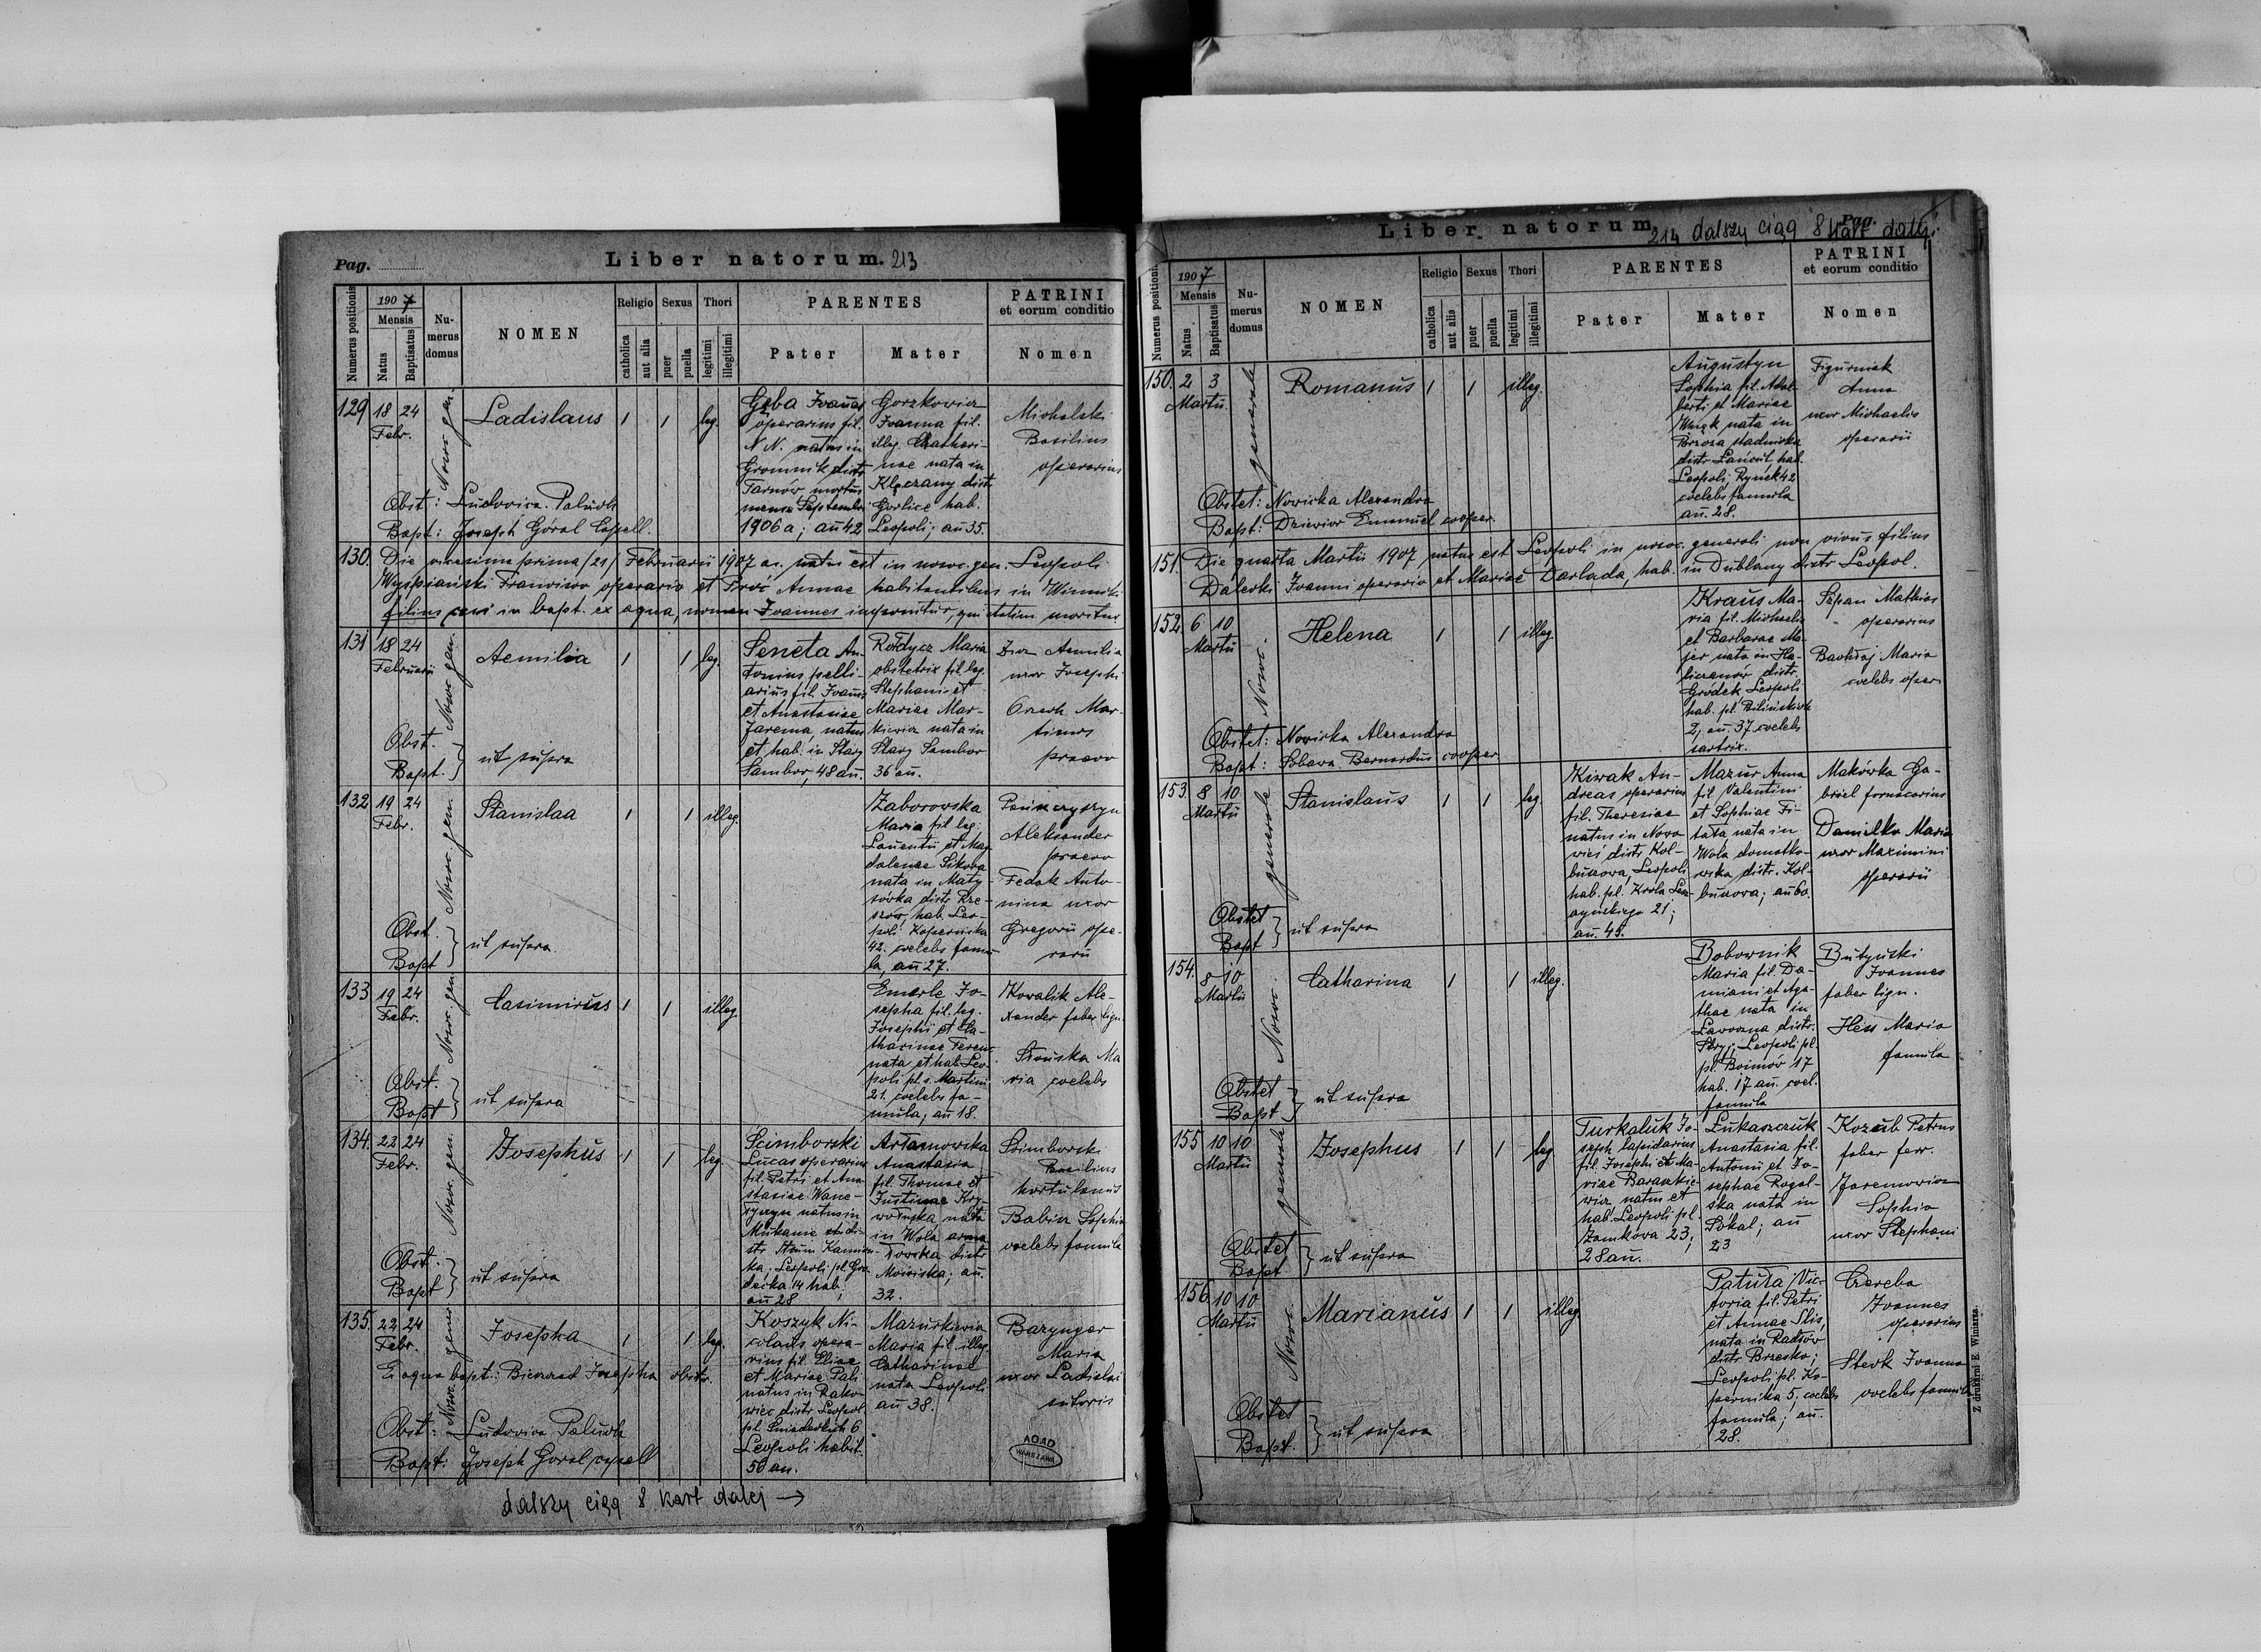 Pag.
Liber natorum. 213
Numerus positionis
1907
Mensis
Natus
Baptisatus
Numerus domus
NOMEN
Religio
catholica
aut alia
Sexus
puer
puella
Thori
legitimi
illegitimi
PARENTES
Pater
Mater
PATRINI
et eorum conditio
Nomen
129
18 24
Febr.
Nosoc. gen.
Ladislaus
1
1
leg.
Gęba Joannes
operarius fil.
N.N. natus in
Gromnik distr.
Tarnów mortuus
mense Septembr.
1906 a; añ 42
Gorzkowicz
Joanna fil.
illeg. Chathari-
nae nata in
Klęczany distr.
Gorlice hab.
Leopoli; añ 35.
Michalski
Basilius
operarius
Obst: Ludovica Paluch
Bapt: Joseph Góral Capell.
130.
Die vicesima prima /21/ Februarii 1907 a. natus est in nosoc. gen. Leopoli
Wyspiański Francisco operario et Proć Annae habitantibus in Winniki
filius cui in bapt. ex aqua, nomen Joannes imponitur, qui statim moritur
131
18 24
Februarii
Nosoc. gen.
Aemilia
1
1
leg.
Seneta An-
tonius pelli-
arius fil. Joannis
et Anastasiae
Jarema, natus
et hab. in Stary
Sambor, 48 añ.
Rołdycz Maria
obstetrix fil. leg.
Stephani et
Mariae Mar-
kiewicz nata in
Stary Sambor
36 añ.
Aemilia
uxor Josephi
Mar-
tinus
praeco
Obst.
Bapt. } ut supra
132
19 24
Febr.
Nosoc. gen
Stanislaa
1
1
illeg.
Zaborowska
Maria fil. leg.
Laurentii et Mag-
dalenae Sikora
nata in Maty-
sówka distr. Rze-
szów, hab. Leo-
poli Kopernika
42. coelebs famu-
la, añ 27.
Aleksander
praeco
Fedak Anto-
nina uxor
Gregorii ope-
rarii
Obst.
Bapt } ut supra
133
19 24
Febr.
Nosoc. gen.
Casimirus
1
1
illeg.
Emerle Jo-
sepha fil. leg.
Josephi et Ca-
tharinae Ferenc
nata et hab. Leo-
poli pl. s. Martini
21. coelebs fa-
mula, añ 18.
Kowalik Ale-
xander faber lign.
Ma
ria coelebs
Obst.
Bapt } ut supra
134.
22 24
Febr.
Nosoc. gen.
Josephus
1
1
leg.
Scimborski
Lucas operarius
fil. Petri et Ana-
stasiae Wane-
natus in
Mukanie di-
str. Kamion-
ka; Leopoli pl. Gro-
decka 14 hab.
añ 28
Artamowska
Anastasia
fil. Thomae et
Justinae Kry-
nata
in Wola arma-
towska distr.
Mościska; añ.
32.
Scimborski
Basilius
hortulanus
Babicz Sophia
coelebs famula
Obst.
Bapt } ut supra
135.
22 24
Febr.
Nosoc. gener
Josepha
1
1
leg.
Koszyk Ni-
colaus opera-
rius fil. Eliae
et Mariae Pali
natus in Rako-
wiec distr. Leopol.
pl. Sniadeckich 6
Leopoli habit.
50 an.
Mazurkiewicz
Maria fil. illeg.
Catharinae
nata Leopoli
añ 38.
Barynger
Maria
uxor Ladislai
sutoris
Ex aqua bapt.: Josepha obstr.
Obst: Ludovica Paluch
Bapt: Joseph Goral capell
AGAD
WARSZAWA
dalszy ciąg 8 kart dalej →
Liber natorum.
214 dalszy ciąg 8 kart dalej.
Pag.
Numerus positionis
1907
Mensis
Natus
Baptisatus
Numerus domus
NOMEN
Religio
catholica
aut alia
Sexus
puer
puella
Thori
legitimi
illegitimi
PARENTES
Pater
Mater
PATRINI
et eorum conditio
Nomen
150.
2 3
Martii
generale
Romanus
1
1
illeg.
Augustyn
Sophia fil. Adal-
berti et Mariae
Wnęk nata in
Brzoza stadnicka
distr. Łańcut, hab.
Leopoli; Rynek 42
coelebs famula
añ. 28.
Figurniak
Anna
uxor Michaelis
operarii
Obstet: Nowicka Alexandra
Bapt: Dziewior Emanuel cooper.
151
Die quarta Martii 1907, natus est Leopoli in nosoc. generali non vivus filius
Dalecki Joanni operario et Mariae Darlada, hab. in Dublany distr. Leopol.
152.
6 10
Martii
Nosoc.
Helena
1
1
illeg.
Kraus Ma-
ria fil. Michaelis
et Barbarae Ma-
jer nata in Ha-
liczanów distr.
Gródek Leopoli
hab. pl. Bilińskich
2; añ. 37. coelebs
sartrix.
Szpan Mathias
operarius
Bachraj Maria
coelebs oper
Obstet: Nowicka Alexandra
Bapt: Sobawa Bernardus cooper
153.
8 10
Martii
generale
Stanislaus
1
1
leg.
Kiwak An-
dreas operarius
fil. Theresiae
natus in Nowa
wieś distr. Kol-
buszowa, Leopoli
hab. pl. Króla Les-
czyńskiego 21;
añ. 45.
Mazur Anna
fil. Valentini
et Sophiae Fi-
tata nata in
Wola domatko-
wska distr. Kol-
buszowa; añ 60.
Makówka Ga-
briel fornacarius
Danielko Maria
uxor Maximini
operarii
Obstet
Bapt } ut supra
154.
8 10
Martii
Nosoc.
Catharina
1
1
illeg.
Bobownik
Maria fil. Da-
miani et Aga-
thae nata in
Ławoczna distr.
Stryj; Leopoli pl.
pl. Boimów 17
hab. 17 añ. coel.
famula
Butyński
Joannes
faber lign.
Hess Maria
famula
Obstet
Bapt } ut supra
155
10 10
Martii
generale
Josephus
1
1
leg
Turkaluk Jo-
seph lapidarius
fil. Josephi et Ma-
riae Barankie-
wicz natus et
hab. Leopoli pl.
Zamkowa 23;
28 añ.
Łukaszczuk
Anastasia fil.
Antonii et Jo-
sephae Rogal-
ska nata in
Sokal; añ
23
Kozub Petrus
faber ferr.
Jaremowicz
Sophia
uxor Stephani
Obstet
Bapt } ut supra
156.
10 10
Martii
Nosoc.
Marianus
1
1
illeg
Patuła Vic-
toria fil. Petri
et Annae Slis,
nata in Radłów
distr. Brzesko;
Leopoli pl. Ko-
pernika 5, coelebs
famula; añ.
28.
Czereba
Joannes
operarius
Steck Joanna
coelebs famula
Obstet
Bapt. } ut supra
Z drukarni E. Winiarza